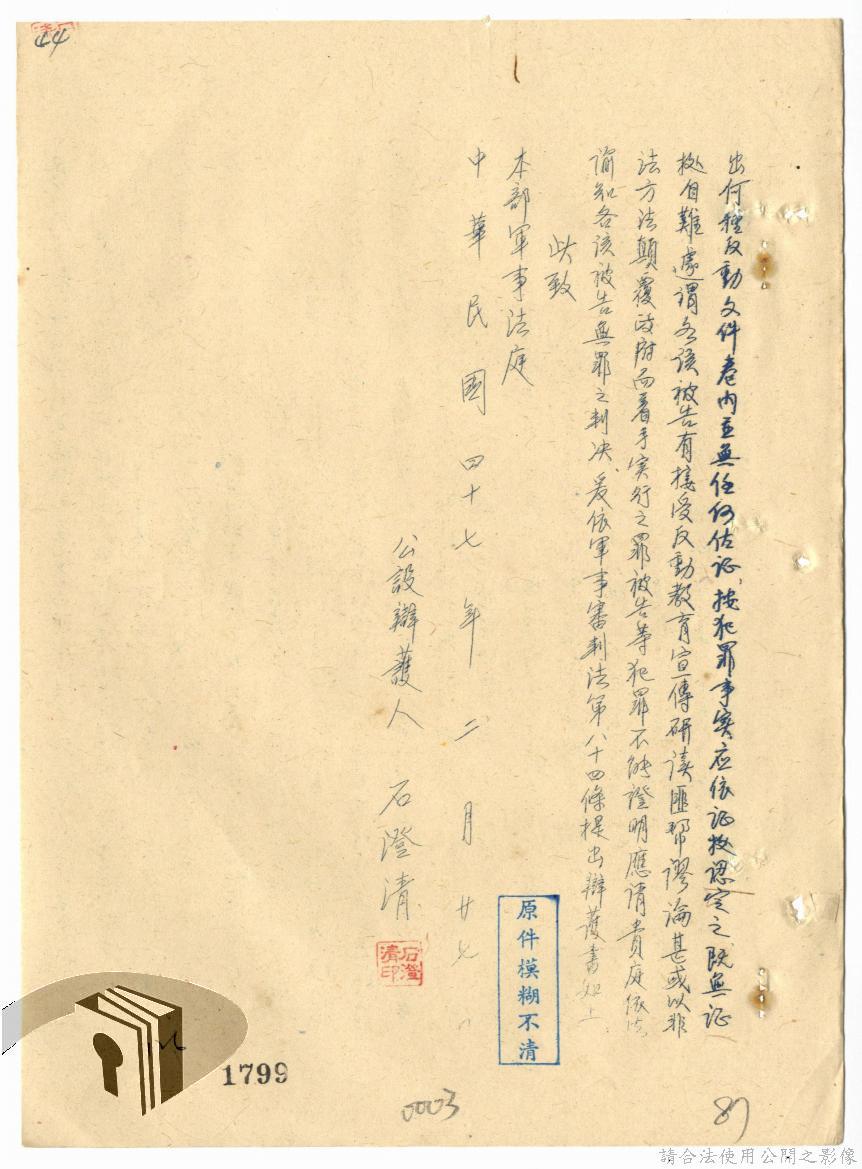 44
出何種反動文件卷內並無任何佐证、按犯罪事实应依证拠認定之既無证
拠自難遽谓各该被告有接受反動教育宣傳研读匪帮謬論甚或以非
法方法顛覆政府而着手实行之罪被告等犯罪不能證明應请貴庭依法
谕知各该被告無罪之判决、爰依軍事審判法第八十四條提出辯護書如上
此致
本部軍事法庭
中華民國四十七年二月廿七日
公設辯護人 石澄清
石澄清印
原件模糊不清
1799
0003
87
請合法使用公開之影像